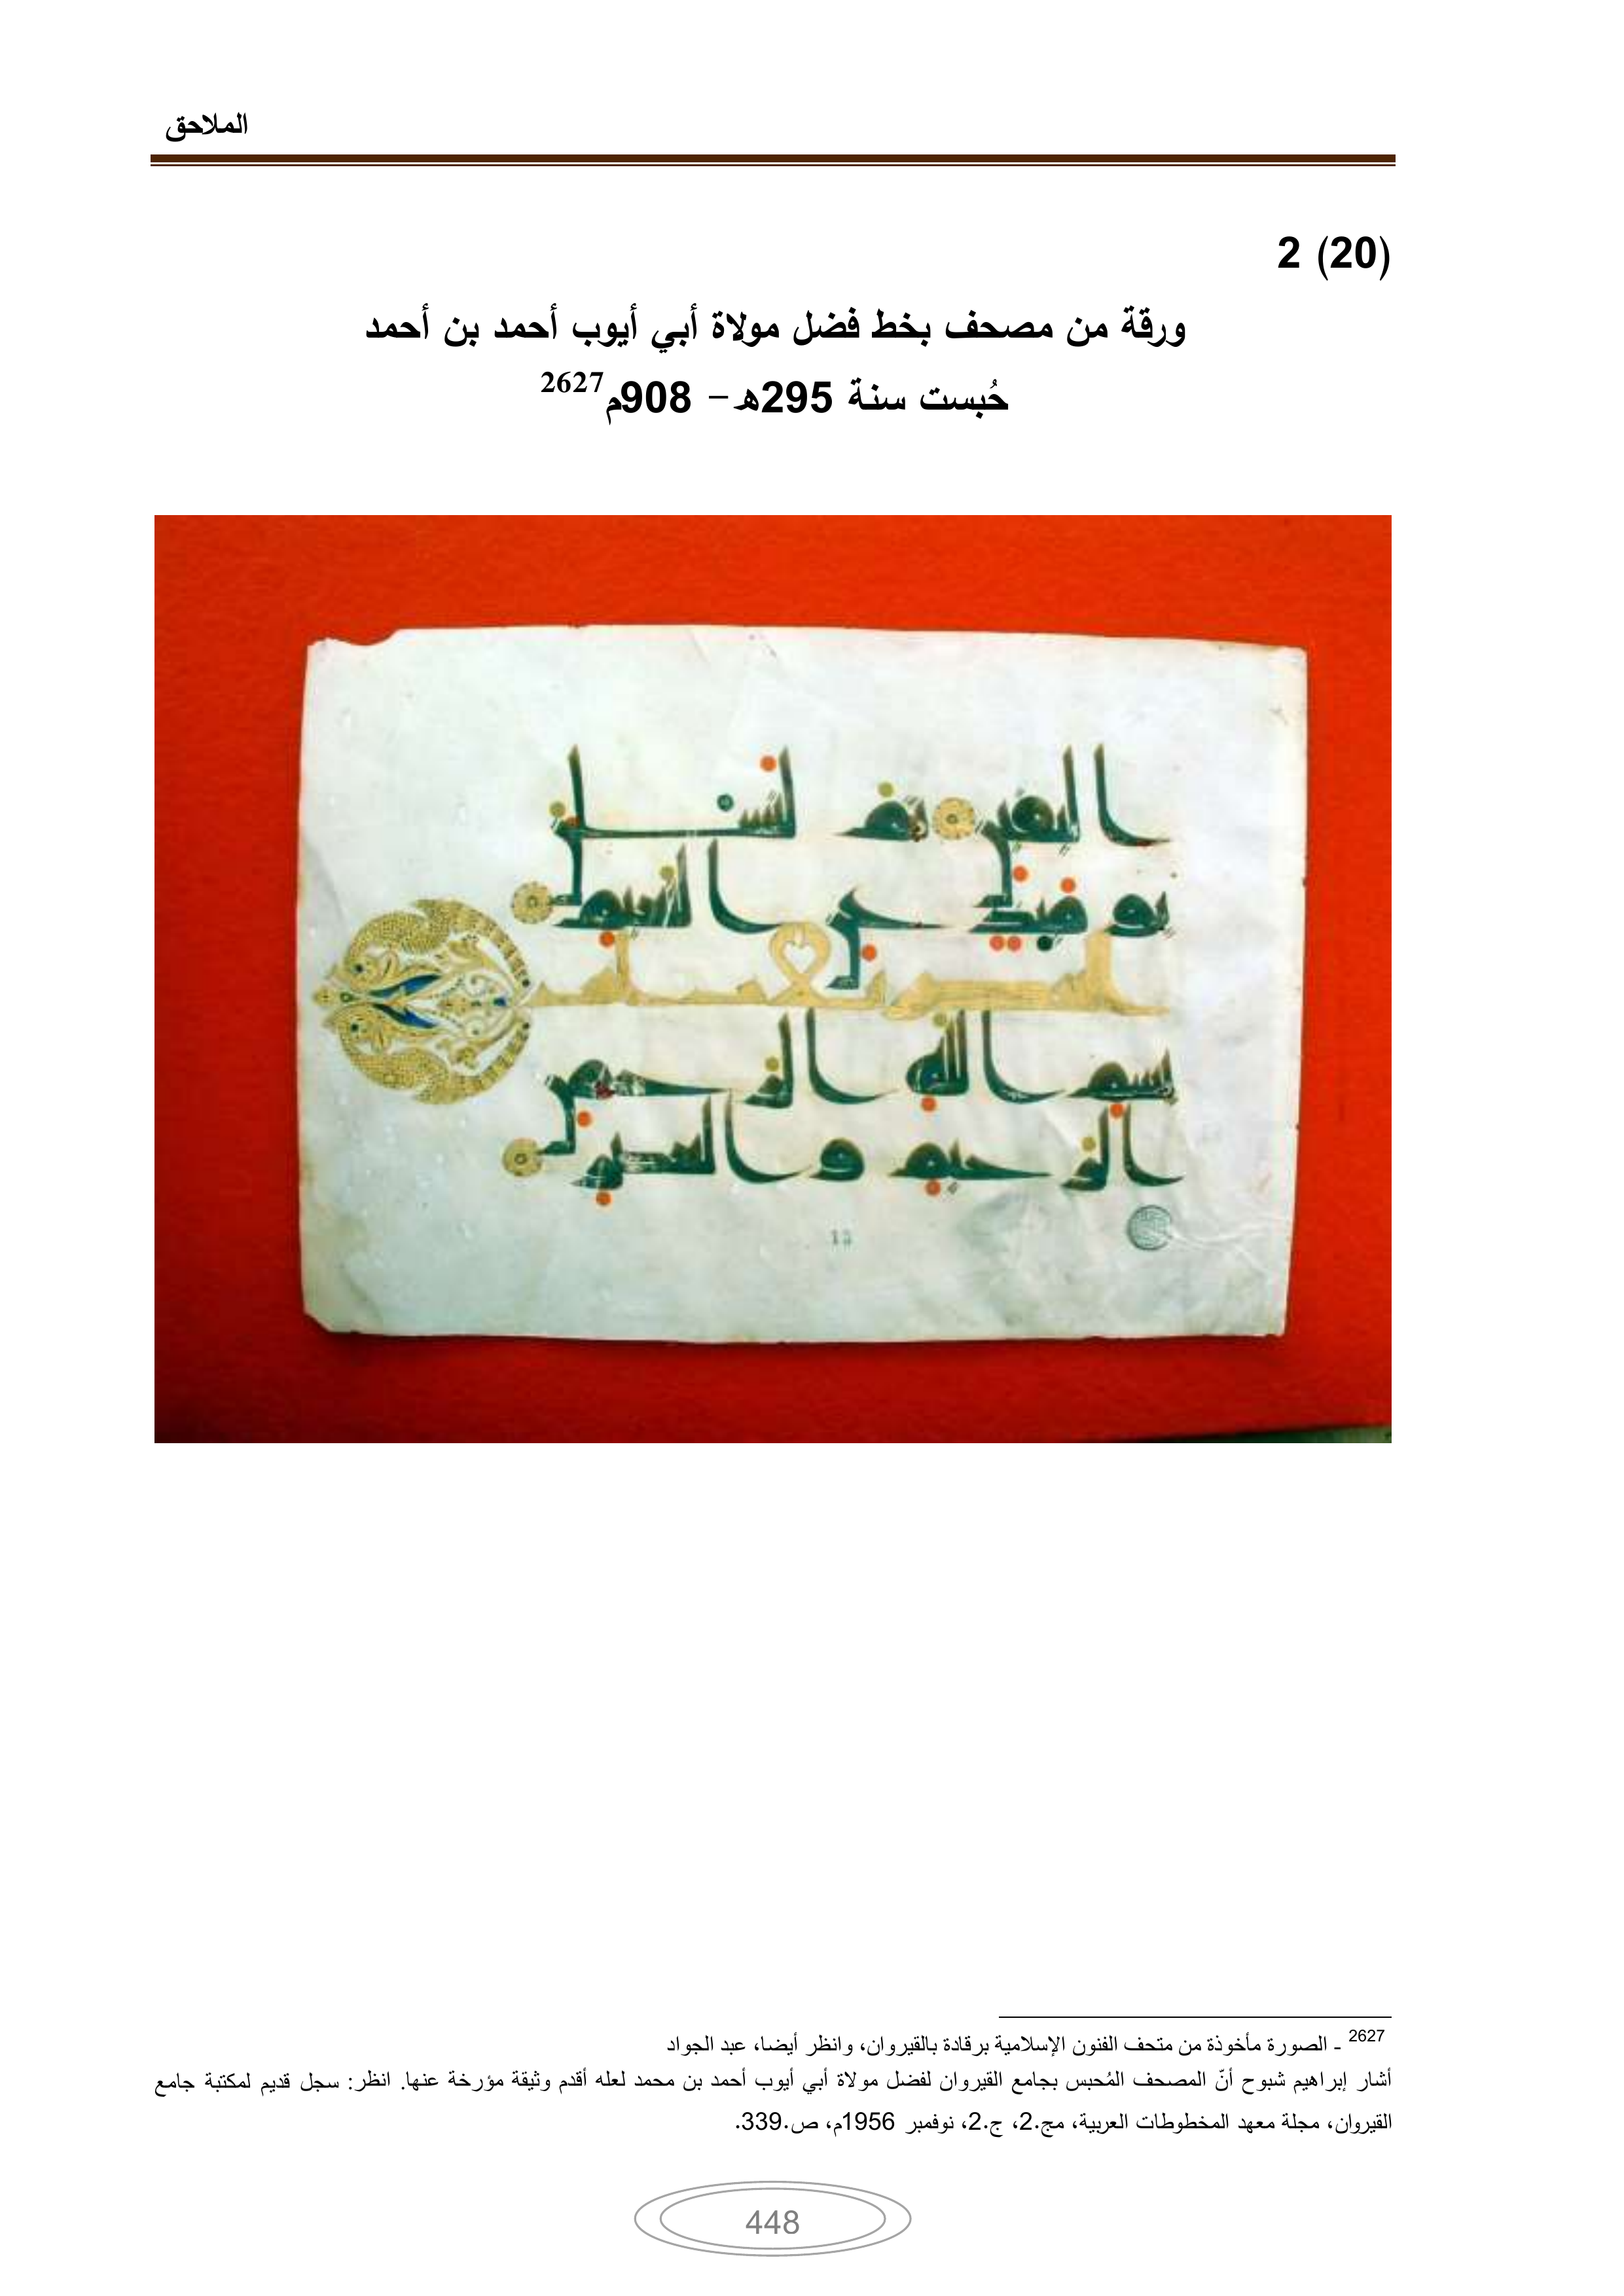 الملاحق
2 (20)
ورقة من مصحف بخط فضل مولاة أبي أيوب أحمد بن أحمد
حُبست سنة 295هـ– 908م2627
اليقين ثم لتسئلن
يومئذ عن النعيم
بسم الله الرحمن
الرحيم والعصر
2627 ـ الصورة مأخوذة من متحف الفنون الإسلامية برقادة بالقيروان، وانظر أيضا، عبد الجواد
أشار إبراهيم شبوح أنّ المصحف المُحبس بجامع القيروان لفضل مولاة أبي أيوب أحمد بن محمد لعله أقدم وثيقة مؤرخة عنها. انظر: سجل قديم لمكتبة جامع
القيروان، مجلة معهد المخطوطات العربية، مج.2، ج.2، نوفمبر 1956م، ص.339.
448